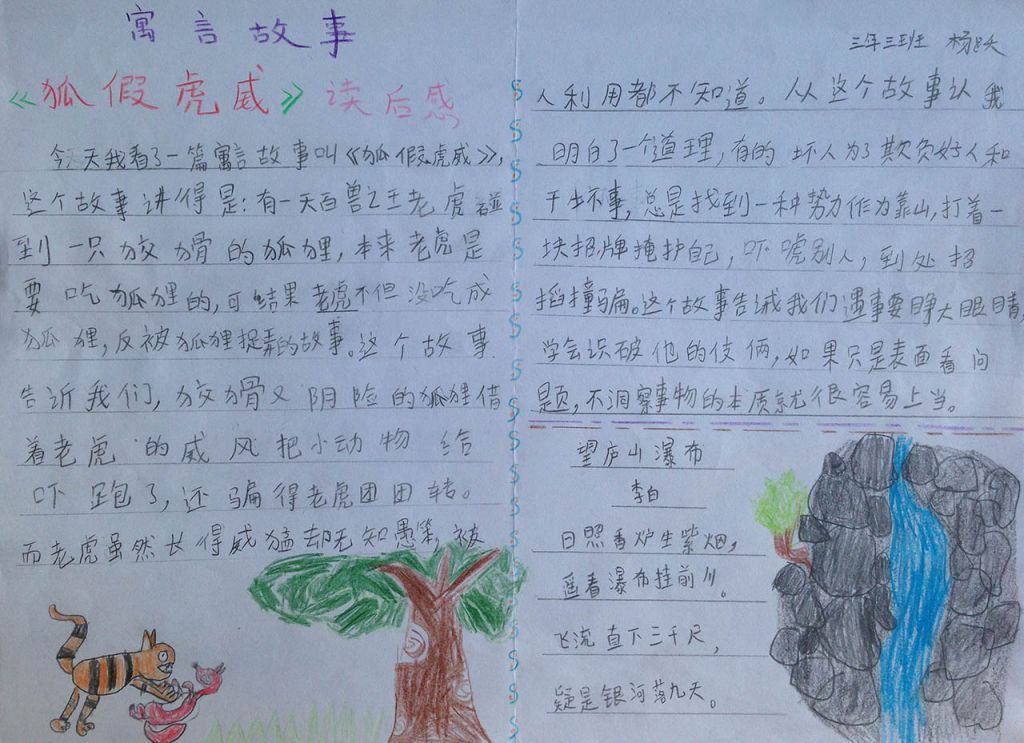 寓言故事
《狐假虎威》读后感
今天我看了一篇寓言故事叫《狐假虎威》，
这个故事讲得是：有一天百兽之王老虎碰
到一只狡猾的狐狸，本来老虎是
要吃狐狸的，可结果老虎不但没吃成
狐狸，反被狐狸捉弄的故事。这个故事
告诉我们，狡猾又阴险的狐狸借
着老虎的威风把小动物给
吓跑了，还骗得老虎团团转。
而老虎虽然长得威猛却无知愚笨，被
三年三班 杨
人利用都不知道。从这个故事让我
明白了一个道理，有的坏人为了欺负好人和
干坏事，总是找到一种势力作为靠山，打着一
块招牌掩护自己，吓唬别人，到处招
摇撞骗。这个故事告诫我们遇事要睁大眼睛，
学会识破他的伎俩，如果只是表面看问
题，不洞察事物的本质就很容易上当。
望庐山瀑布
李白
日照香炉生紫烟，
遥看瀑布挂前川。
飞流直下三千尺，
疑是银河落九天。